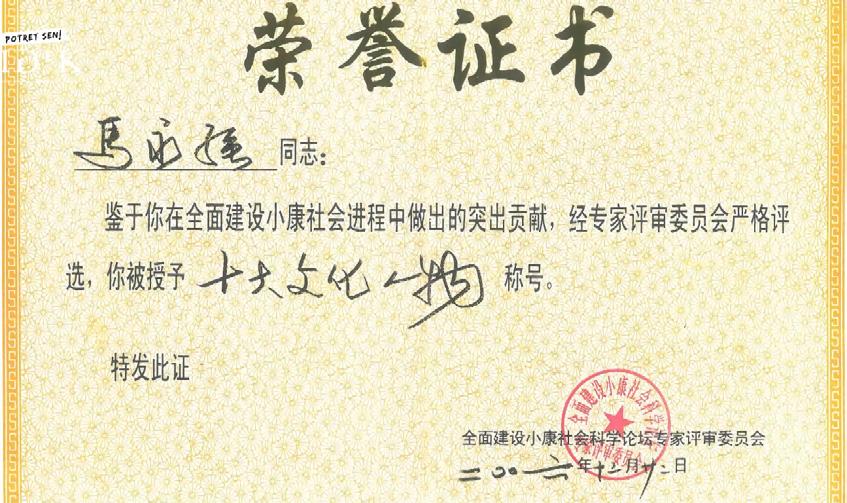 POTRET SENI
荣誉证书
馬永强 同志：
鉴于你在全面建设小康社会进程中做出的突出贡献，经专家评审委员会严格评
选，你被授予 十大文化人物 称号。
特发此证
全面建设小康社会科学论坛专家评审委员会
二〇〇六年十二月廿二日